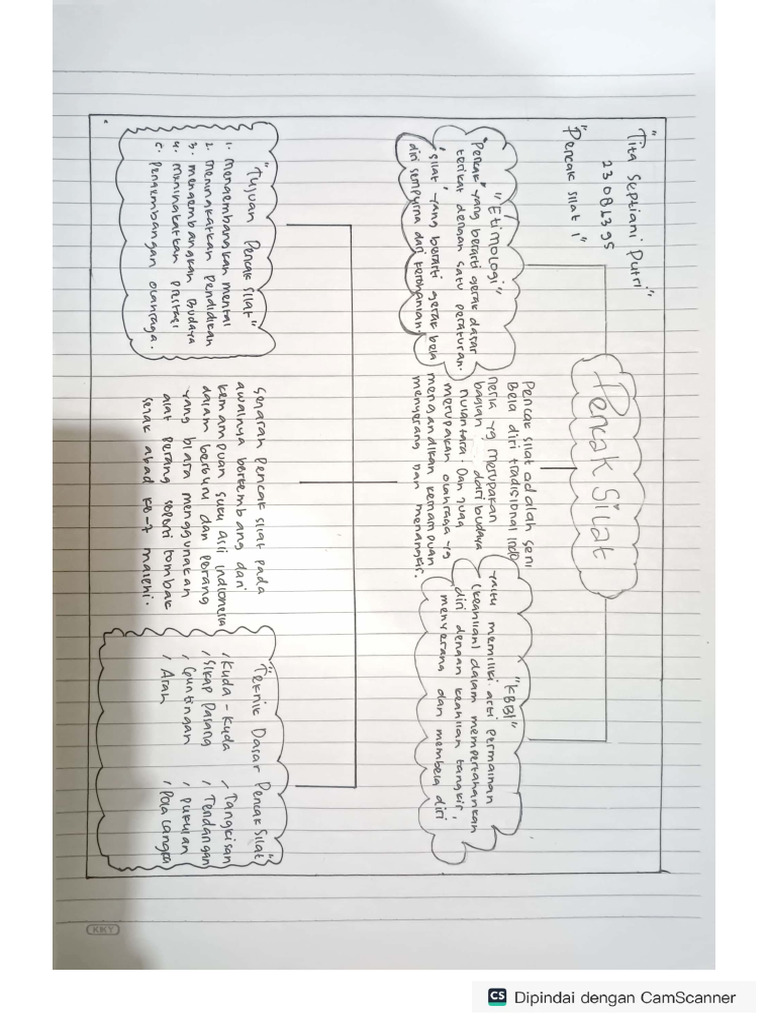 "Tita Septiani Putri"
23081395
"Pencak Silat 1"
Pencak Silat
"Etimologi"
"Pencak" yang berarti gerak dasar
terikat dengan satu peraturan.
'silat' yang berarti gerak bela
diri sempurna dari kerohanian.
Pencak silat adalah seni
Bela diri tradisional Indo
nesia yg merupakan
bagian dari budaya
nusantara. Dan juga
merupakan olahraga yg
mengandikan kemampuan
menyerang dan menangkis.
"KBBI"
Yaitu memiliki arti permainan
(keahlian) dalam mempertahankan
diri dengan keahlian tangkis,
menyerang dan membela diri
"Tujuan Pencak Silat"
1. mengembangkan mental
2. meningkatkan Pendidikan
3. mengembangkan Budaya
4. meningkatkan Prestasi
5. Pengembangan olahraga.
Sejarah Pencak silat pada
awalnya berkembang dari
kemampuan suku asli indionesia
dalam berburu dan perang
yang biasa menggunakan
alat perang seperti tombak
sejak abad ke-7 masehi.
"Teknik Dasar Pencak Silat"
/ Kuda-Kuda / Tangkisan
/ Sikap Pasang / Tendangan
/ Guntingan / Pukulan
/ Arah / Pola Langka
KKY
CS Dipindai dengan CamScanner